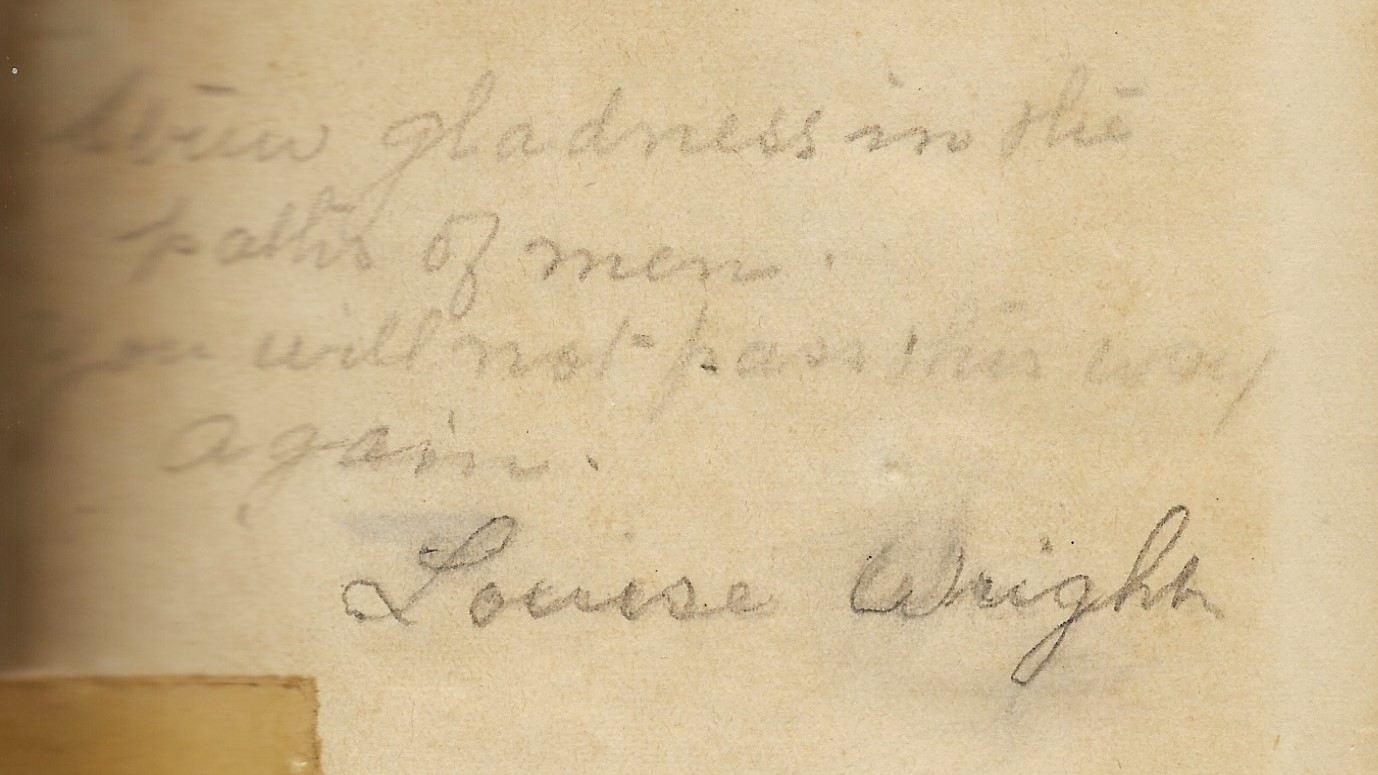 Strew gladness in the
paths of men.
You will not pass this way
again.
Louise Wright